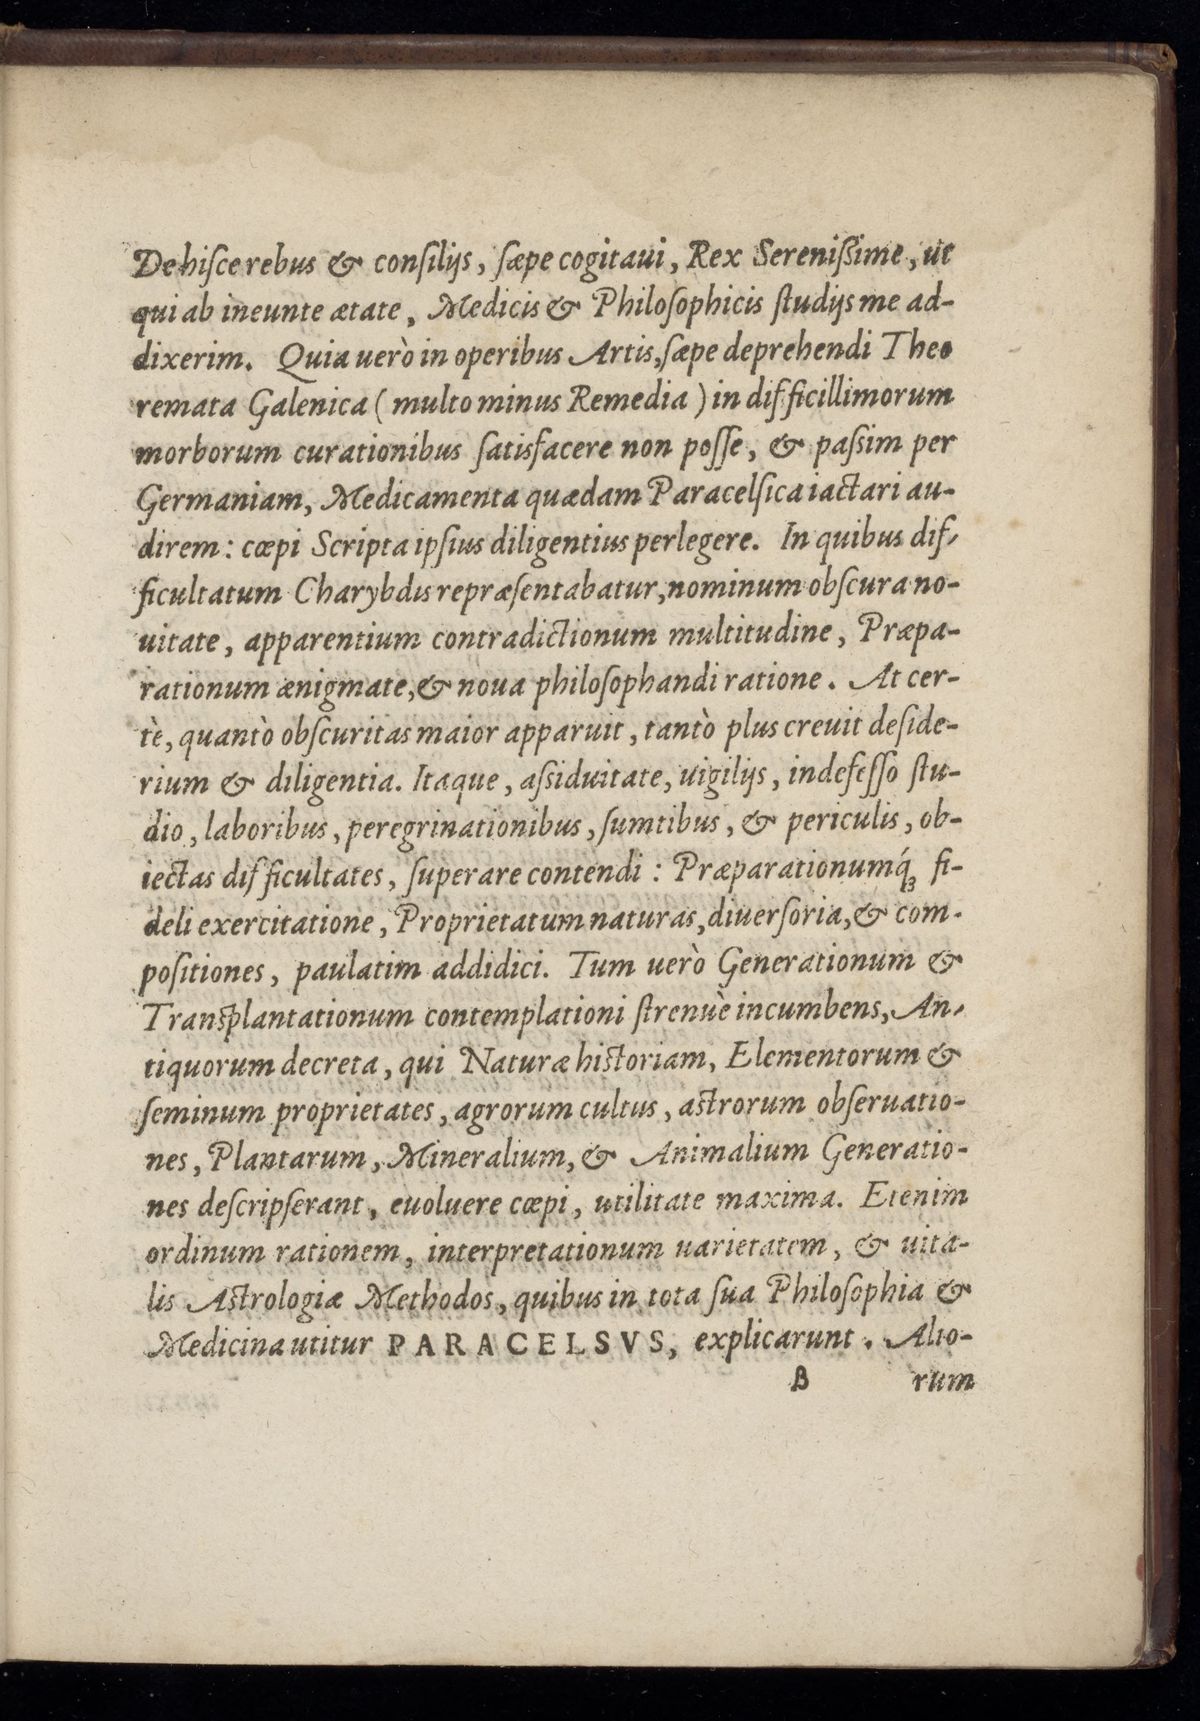 De hiſce rebus & conſilijs, ſæpe cogitaui, Rex Sereniſsime, ut
qui ab ineunte ætate, Medicis & Philoſophicis ſtudijs me ad-
dixerim. Quia uerò in operibus Artis, ſæpe deprehendi Theo
remata Galenica (multo minus Remedia) in difficillimorum
morborum curationibus ſatisfacere non poſſe, & paſsim per
Germaniam, Medicamenta quædam Paracelſica iactari au-
direm: cœpi Scripta ipſius diligentius perlegere. In quibus dif-
ficultatum Charybdis repræſentabatur, nominum obſcura no-
uitate, apparentium contradictionum multitudine, Præpa-
rationum ænigmate, & noua philoſophandi ratione. At cer-
tè, quantò obſcuritas maior apparuit, tantò plus creuit deſide-
rium & diligentia. Itaque, aſsiduitate, uigilijs, indefeſſo ſtu-
dio, laboribus, peregrinationibus, ſumtibus, & periculis, ob-
iectas difficultates, ſuperare contendi: Præparationumq́ꝫ fi-
deli exercitatione, Proprietatum naturas, diuerſoria, & com-
poſitiones, paulatim addidici. Tum uerò Generationum &
Transplantationum contemplationi ſtrenuè incumbens, An-
tiquorum decreta, qui Naturæ hiſtoriam, Elementorum &
ſeminum proprietates, agrorum cultus, aſtrorum obſeruatio-
nes, Plantarum, Mineralium, & Animalium Generatio-
nes deſcripſerant, euoluere cœpi, utilitate maxima. Etenim
ordinum rationem, interpretationum uarietatem, & uita-
lis Aſtrologiæ Methodos, quibus in tota ſua Philoſophia &
Medicina utitur PARACELSVS, explicarunt. Alio-
B rum